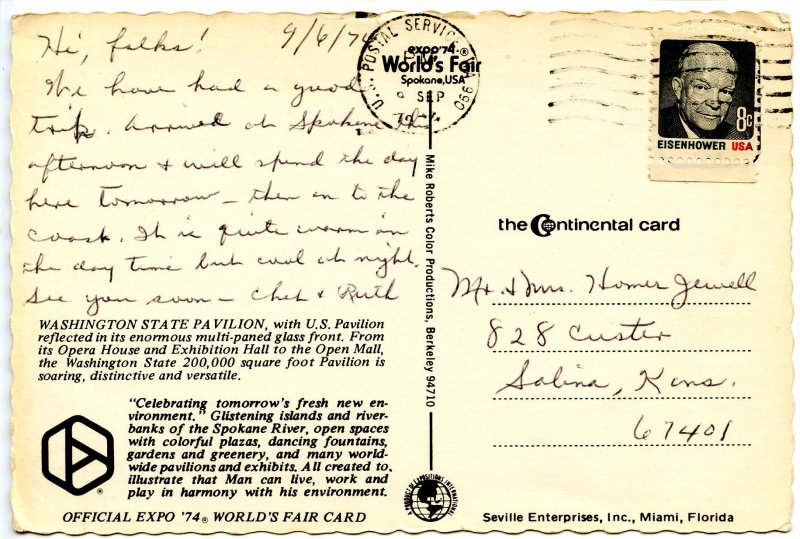 Hi, folks! 9/6/74
We have had a good
trip. Arrived at Spokane this
afternoon & will spend the day
here tomorrow – then on to the
coast. It is quite warm in
the day time but cool at night.
See you soon – Chet & Ruth
WASHINGTON STATE PAVILION, with U.S. Pavilion
reflected in its enormous multi-paned glass front. From
its Opera House and Exhibition Hall to the Open Mall,
the Washington State 200,000 square foot Pavilion is
soaring, distinctive and versatile.
"Celebrating tomorrow's fresh new en-
vironment." Glistening islands and river-
banks of the Spokane River, open spaces
with colorful plazas, dancing fountains,
gardens and greenery, and many world-
wide pavilions and exhibits. All created to
illustrate that Man can live, work and
play in harmony with his environment.
®
OFFICIAL EXPO '74® WORLD'S FAIR CARD
U.S. POSTAL SERVICE 990
expo'74®
World's Fair
Spokane, USA
SEP
Mike Roberts Color Productions, Berkeley 94710
8c
EISENHOWER USA
the Continental card
Mr. & Mrs. Homer Jewell
828 Custer
Salina, Kans.
67401
Seville Enterprises, Inc., Miami, Florida